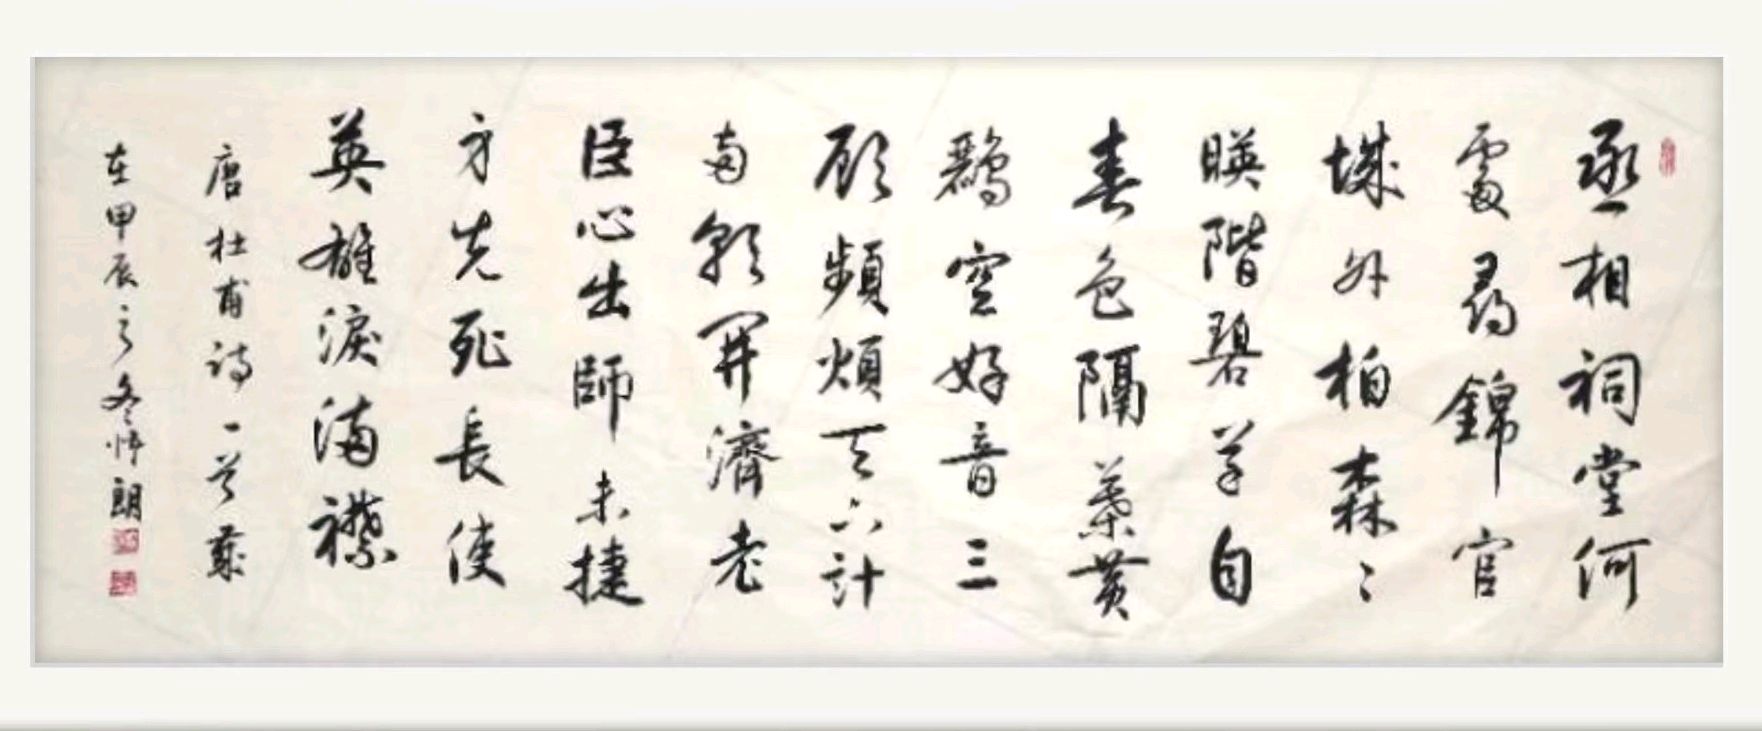 丞相祠堂何
處尋錦官
城外柏森〻
暎階碧草自
春色隔葉黄
鸝空好音三
顧頻煩天下計
兩朝開濟老
臣心出師未捷
身先死長使
英雄淚满襟
唐杜甫詩一首
甲辰之冬
朗